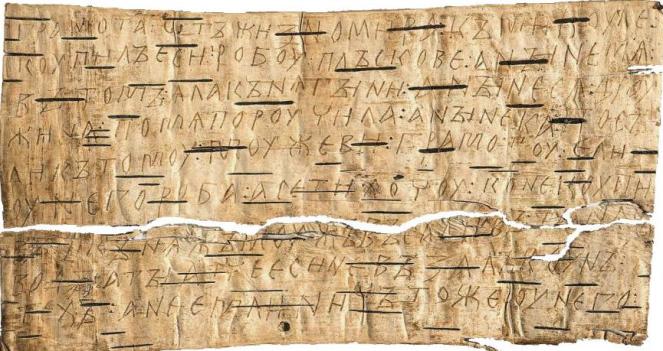 ГРАМОТА : ѠТЪ ЖИЗНОМИРА : КЪ МИКОУЛЕ :
КОУПИЛЪ ЕСИ : РОБОУ : ПЛЪСКОВЕ : А НЪІНЕ МѦ :
ВЪ ТОМЪ : ѦЛА КЪНѦГЪІНИ : А НЪІНЕ СѦ ДРОУ
ЖИНА : ПО МѦ ПОРОУЧИЛА : А НЪІНЕ КА : ПОСЪ
ЛИ КЪ ТОМОУ : МОУЖЕВИ : ГРАМОТОУ : Е ЛИ
ОУ НЕГО РОБА : А СЕ ТИ ХОЧОУ : КОНЕ КОУПИ
МОУЖЪ ВЪСАДИВЪ
ВОДЪІ : А ТЪІ АТЧЕ ЕСИ НЕ ВЪЗАЛЪ КОУНЪ :
ТЕХЪ : А НЕ ЕМЛИ : НИЧЪТО ЖЕ ОУ НЕГО :